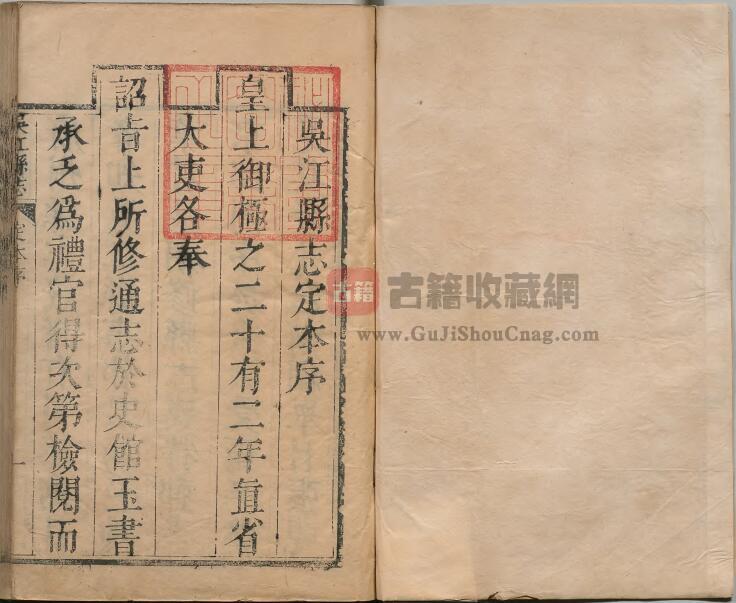 吳江縣志定本序
皇上御極之二十有二年直省
大吏各奉
詔旨上所修通志於史館玉書
承乏爲禮官得次第檢閱而
吳江縣志
定本序
一
古籍
古籍收藏網
www.GuJiShouCnag.com